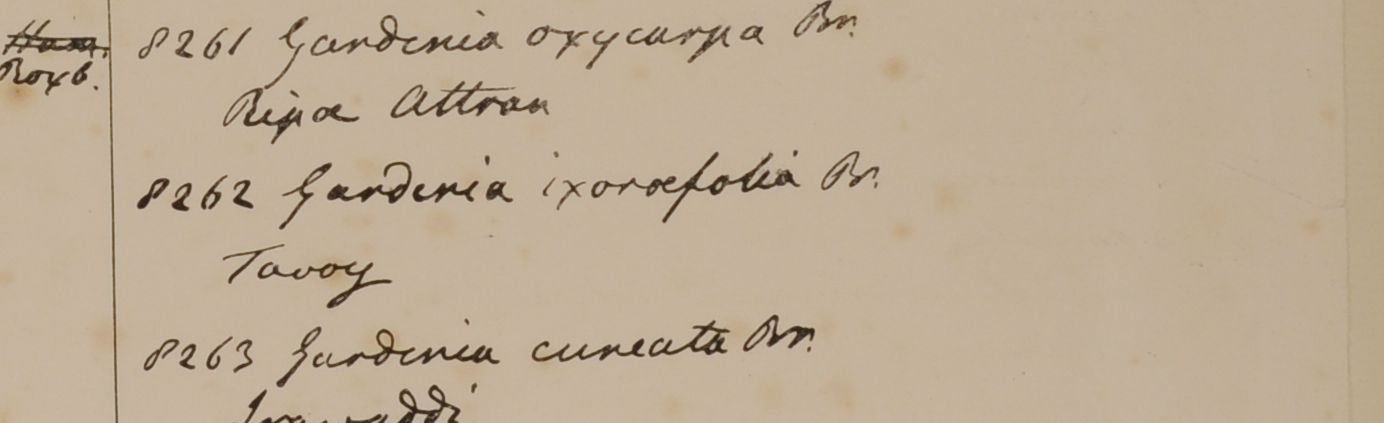 Ham.
Roxb.
8261 Gardenia oxycarpa Br.
Ripa Attran
8262 Gardenia ixoraefolia Br.
Tavoy
8263 Gardenia cuneata Br.
Irawaddi